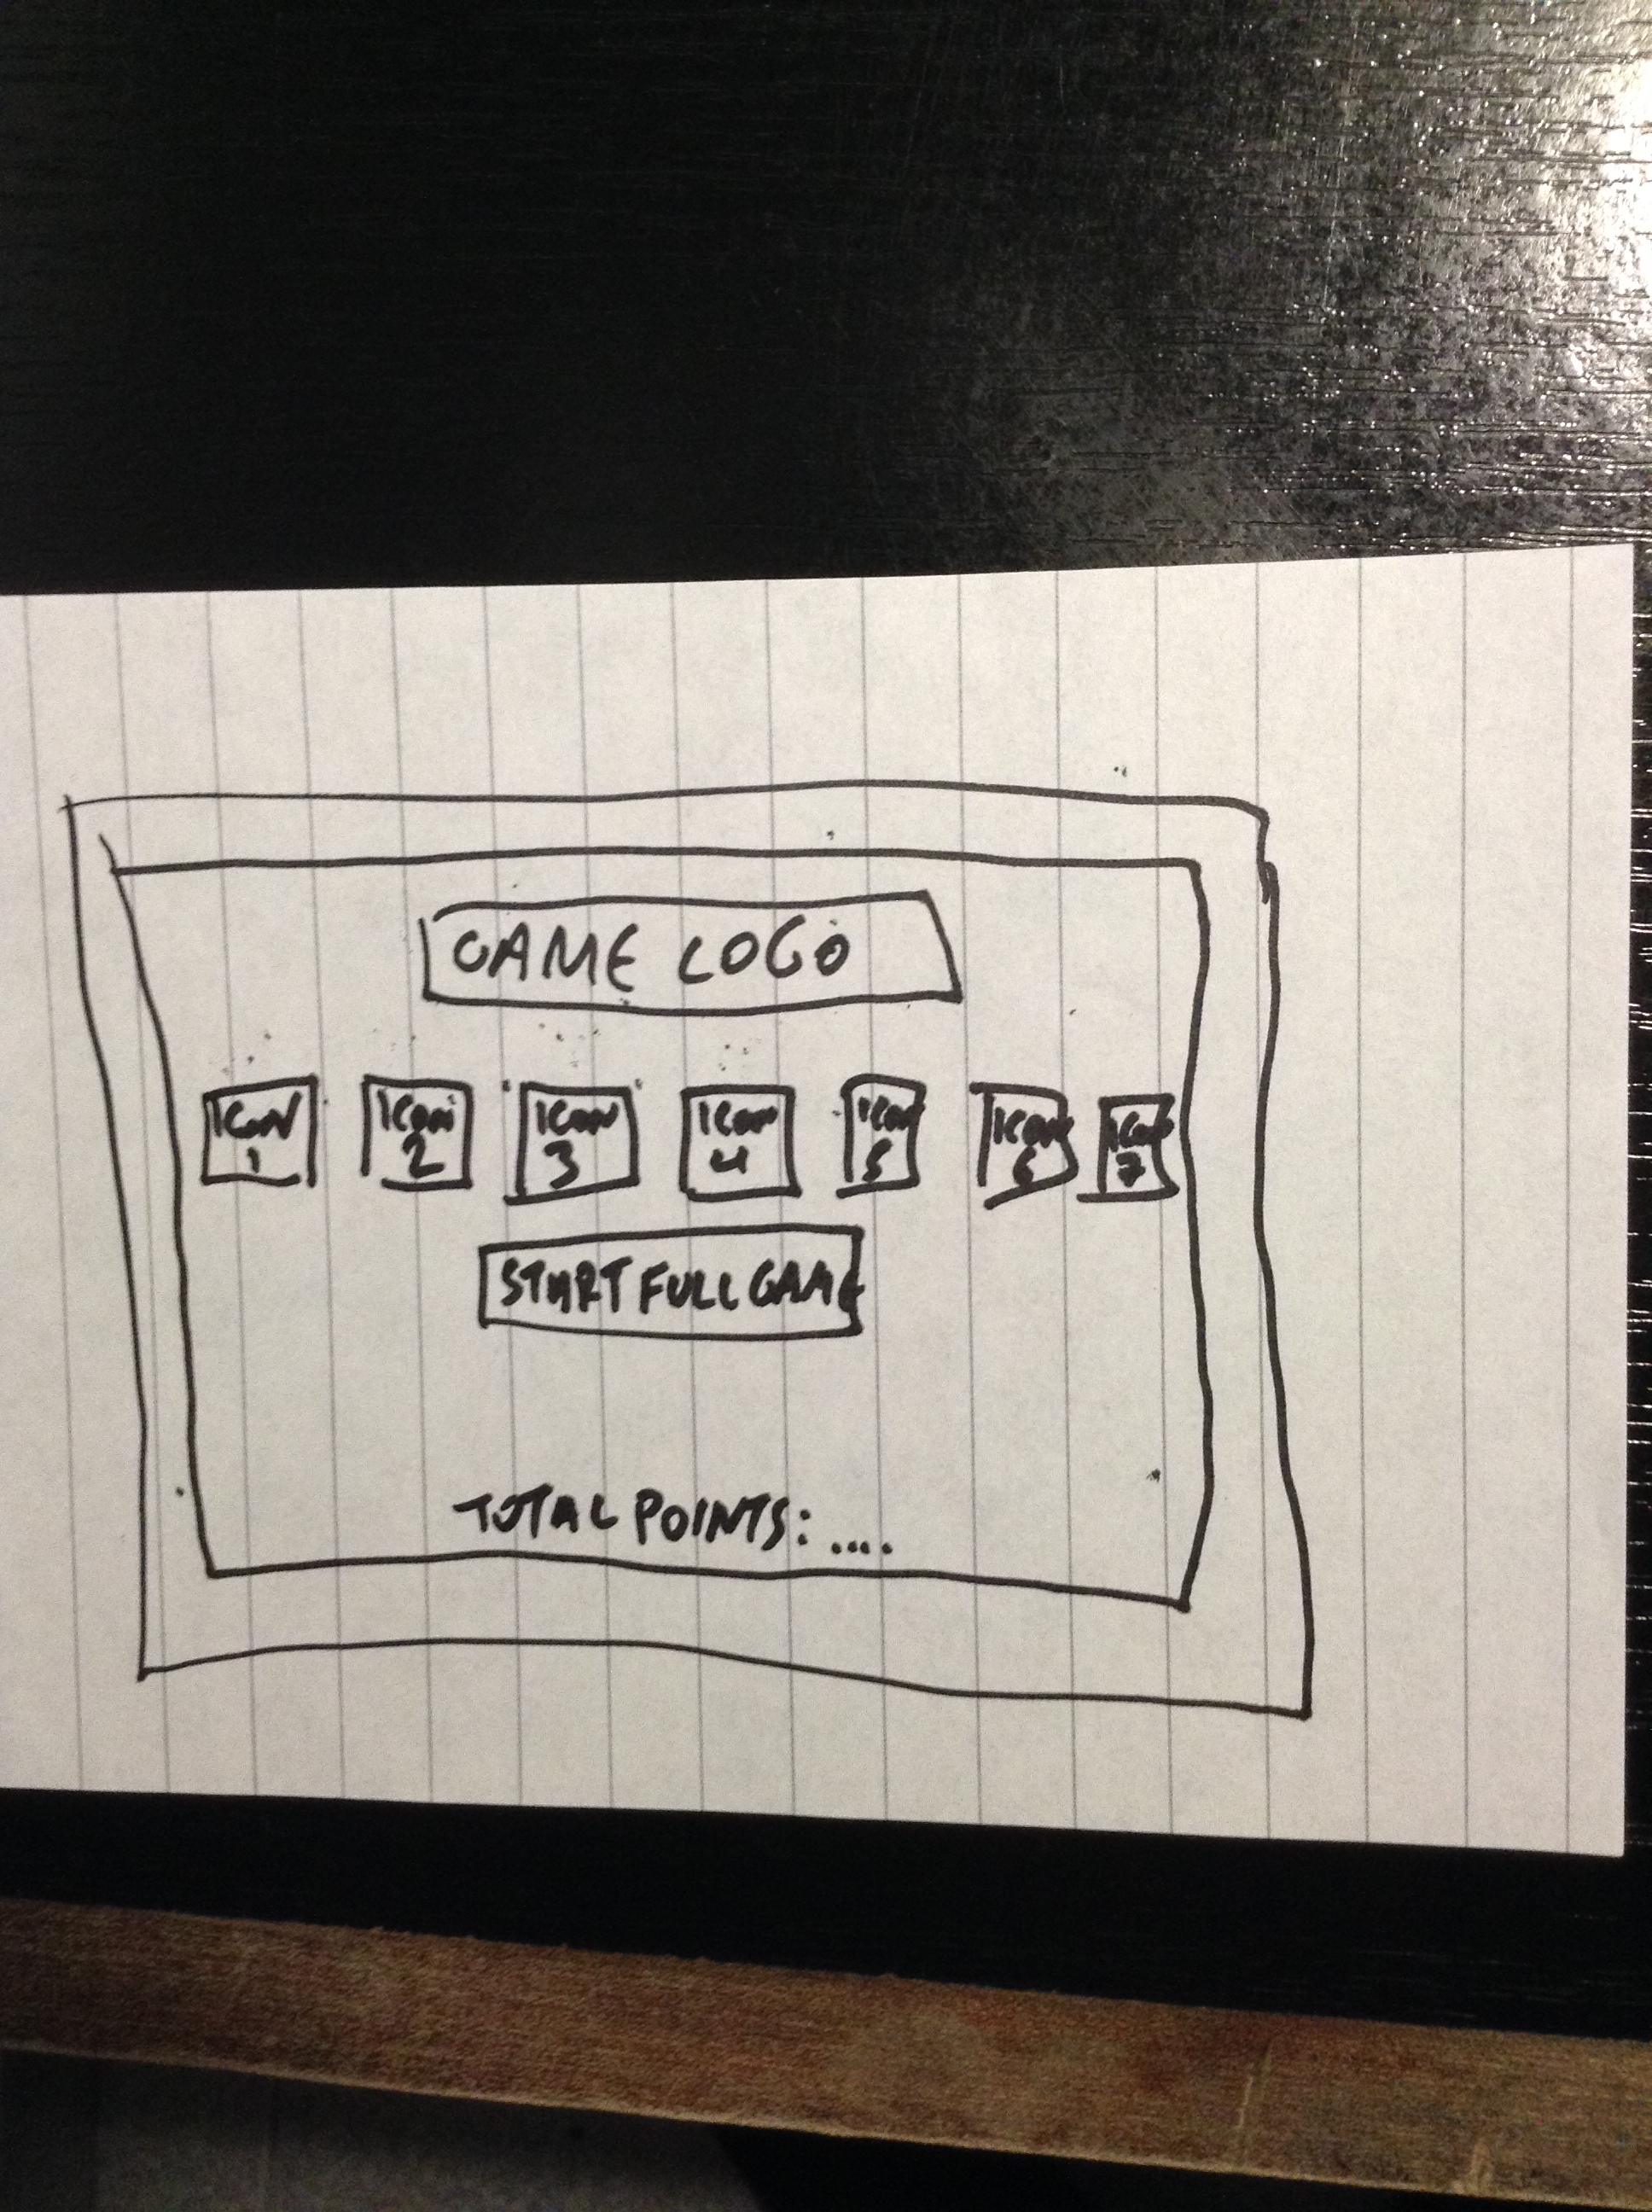 GAME LOGO
ICON 1
ICON 2
ICON 3
ICON 4
ICON 5
ICON 6
ICON 7
START FULL GAME
TOTAL POINTS: ....